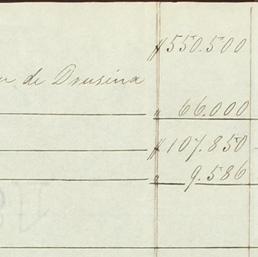 # 550.500
de Drusina
" 66.000
# 107.850
" 9.586